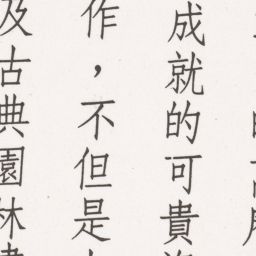 成就的可貴
作，不但是
及古典園林